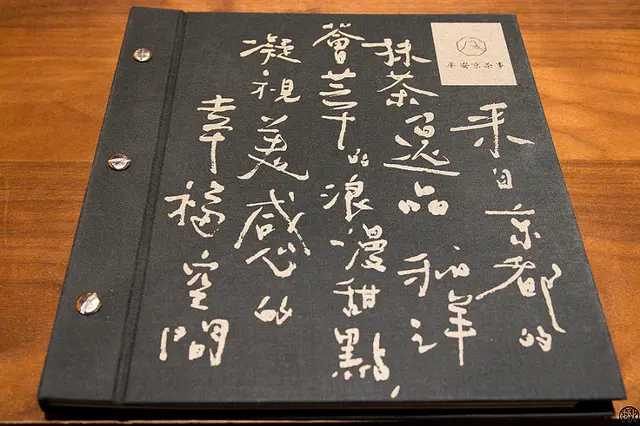 平安京茶事
來自京都的
抹茶逸品 和洋之
薈萃的浪漫甜點,
凝視美感的
幸福空間